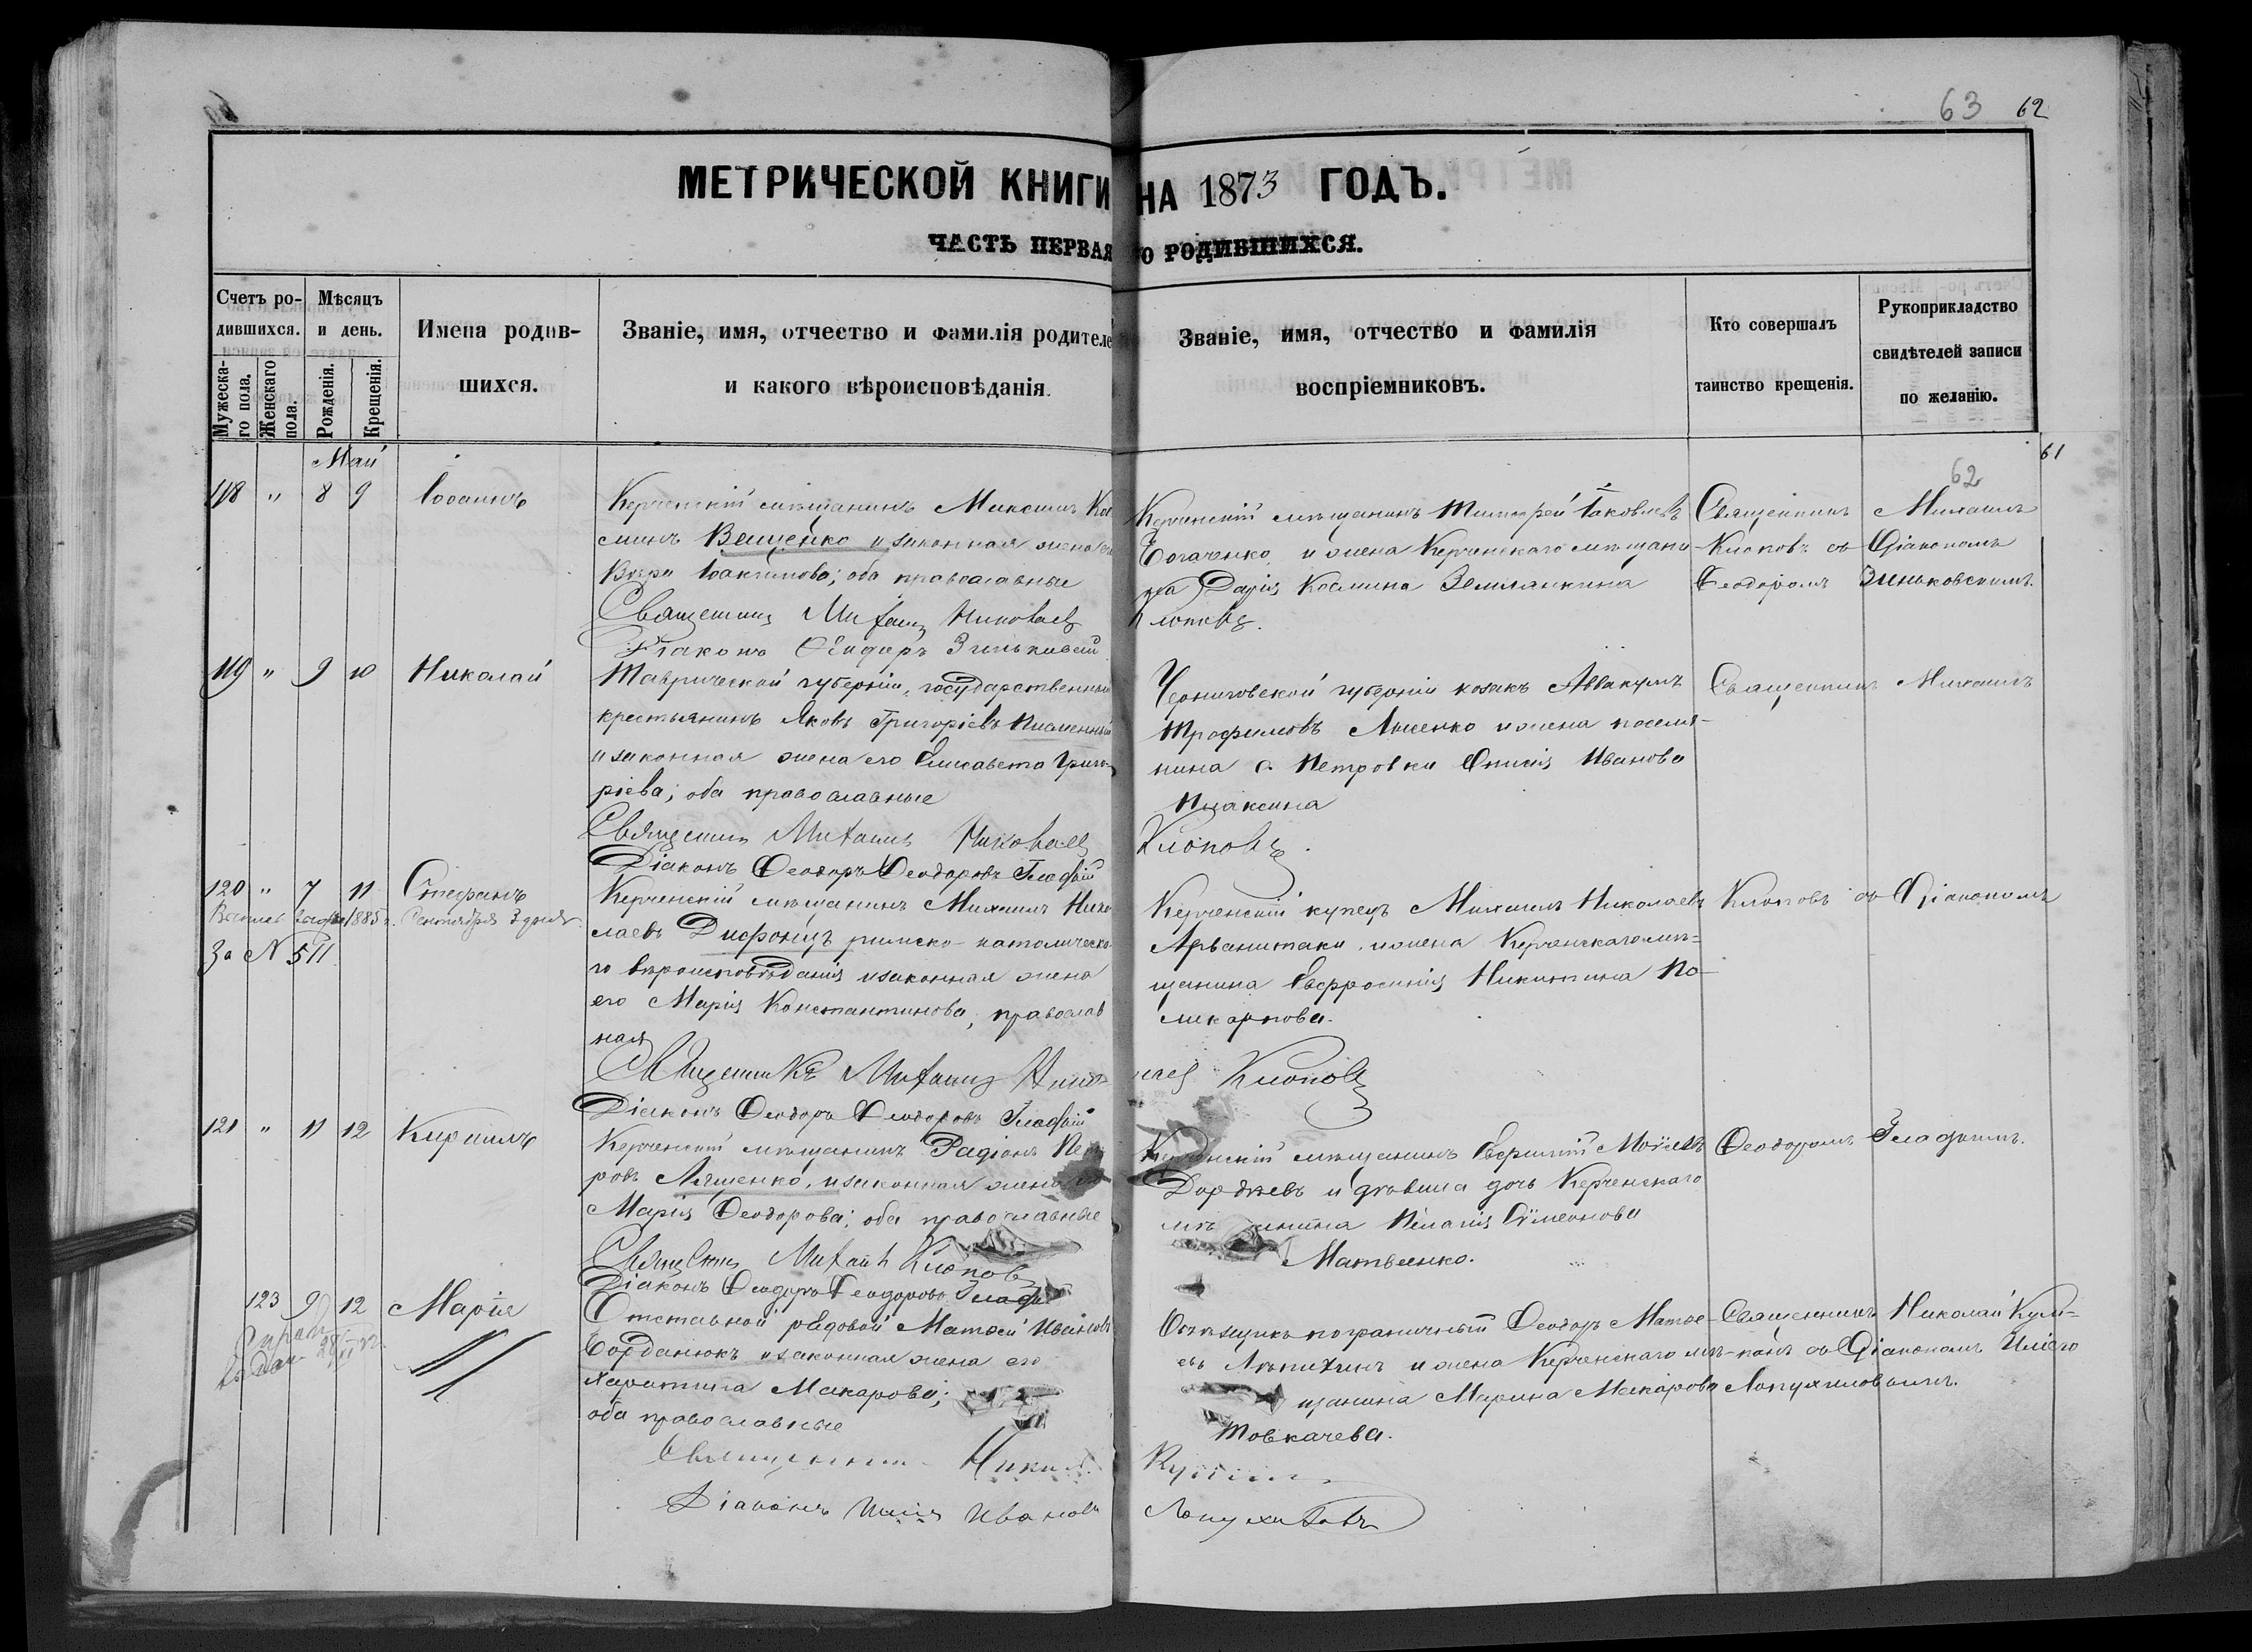 63 62
МЕТРИЧЕСКОЙ КНИГИ НА 1873 ГОДЪ.
ЧАСТЬ ПЕРВАЯ О РОДИВШИХСЯ.
Счетъ ро-
дившихся.
Мужеска-
го пола.
Женскаго
пола.
Мѣсяцъ
и день.
Рожденія.
Крещенія.
Имена родив-
шихся.
Званіе, имя, отчество и фамилія родителе
и какого вѣроисповѣданія.
Званіе, имя, отчество и фамилія
воспріемниковъ.
Кто совершалъ
таинство крещенія.
Рукоприкладство
свидѣтелей записи
по желанію.
61
62
Май
118 " 8 9 Іоаннъ
Керченскій мѣщанинъ Максимъ Кос
минъ Ващенко и законная жена его
Вѣра Іоакимова; оба православные
Священникъ Михаилъ Николаевъ
Діаконъ Ѳеодоръ Зиньковскій
Керченскій мѣщанинъ Тимофей Іаковлевъ
Богаченко, и жена Керченскаго мѣщани
на Дарія Космина Землянкина
Клоповъ.
Священникъ Михаилъ
Клоповъ съ Діакономъ
Ѳеодоромъ Зиньковскимъ.
119 " 9 10 Николай
Таврической губерніи, государственный
крестьянинъ Яковъ Григоріевъ Писменный
и законная жена его Елисавета Григо-
ріева; оба православные
Священникъ Михаилъ Николаевъ
Діаконъ Ѳеодоръ Ѳеодоровъ Гладкій
Черниговской губерніи козакъ Аввакумъ
Трофимовъ Лысенко и жена поселя-
нина с. Петровки Онисія Иванова
Пшаксина
Клоповъ.
Священникъ Михаилъ
120 " 7 11 Стефанъ
1885 г. Сентября 3 дня
За № 511
Керченскій мѣщанинъ Михаилъ Нико
лаевъ Дисфонцъ римско-католическо-
го вѣроисповѣданія и законная жена
его Марія Константинова, православ
ная
Священникъ Михаилъ Нико-
Діаконъ Ѳеодоръ Ѳеодоровъ Гладкій
Керченскій купецъ Михаилъ Николаевъ
Арванитаки, и жена Керченскаго мѣ-
щанина Евфросинія Никитина По-
ликарпова.
лаевъ Клоповъ
Клоповъ съ Діакономъ
121 " 11 12 Кириллъ
Керченскій мѣщанинъ Радіонъ Пет
ровъ Ляшенко, и законная жена его
Марія Ѳеодорова; оба православные
Священникъ Михаилъ Клоповъ
Діаконъ Ѳеодоръ Ѳеодоровъ Гладкій
Керченскій мѣщанинъ Евфимій Моѵсеевъ
Дордіевъ и дѣвица дочь Керченскаго
мѣщанина Пелагія Сѵмеонова
Матвеенко.
Ѳеодоромъ Гладкимъ.
123 9 12 Марія
Отставной рядовой Матѳей Ивановъ
Борданюкъ и законная жена его
Харитина Макарова;
оба православные
Священникъ Никол.
Діаконъ Илія Ивановъ
Объѣзщикъ пограничный Ѳеодоръ Матѳе-
евъ Лепихинъ и жена Керченскаго мѣ-
щанина Марина Макарова
Товкачева.
Лопухиловъ
Священникъ Николай Кули-
съ Діакономъ Иліею
Лопухиловымъ.